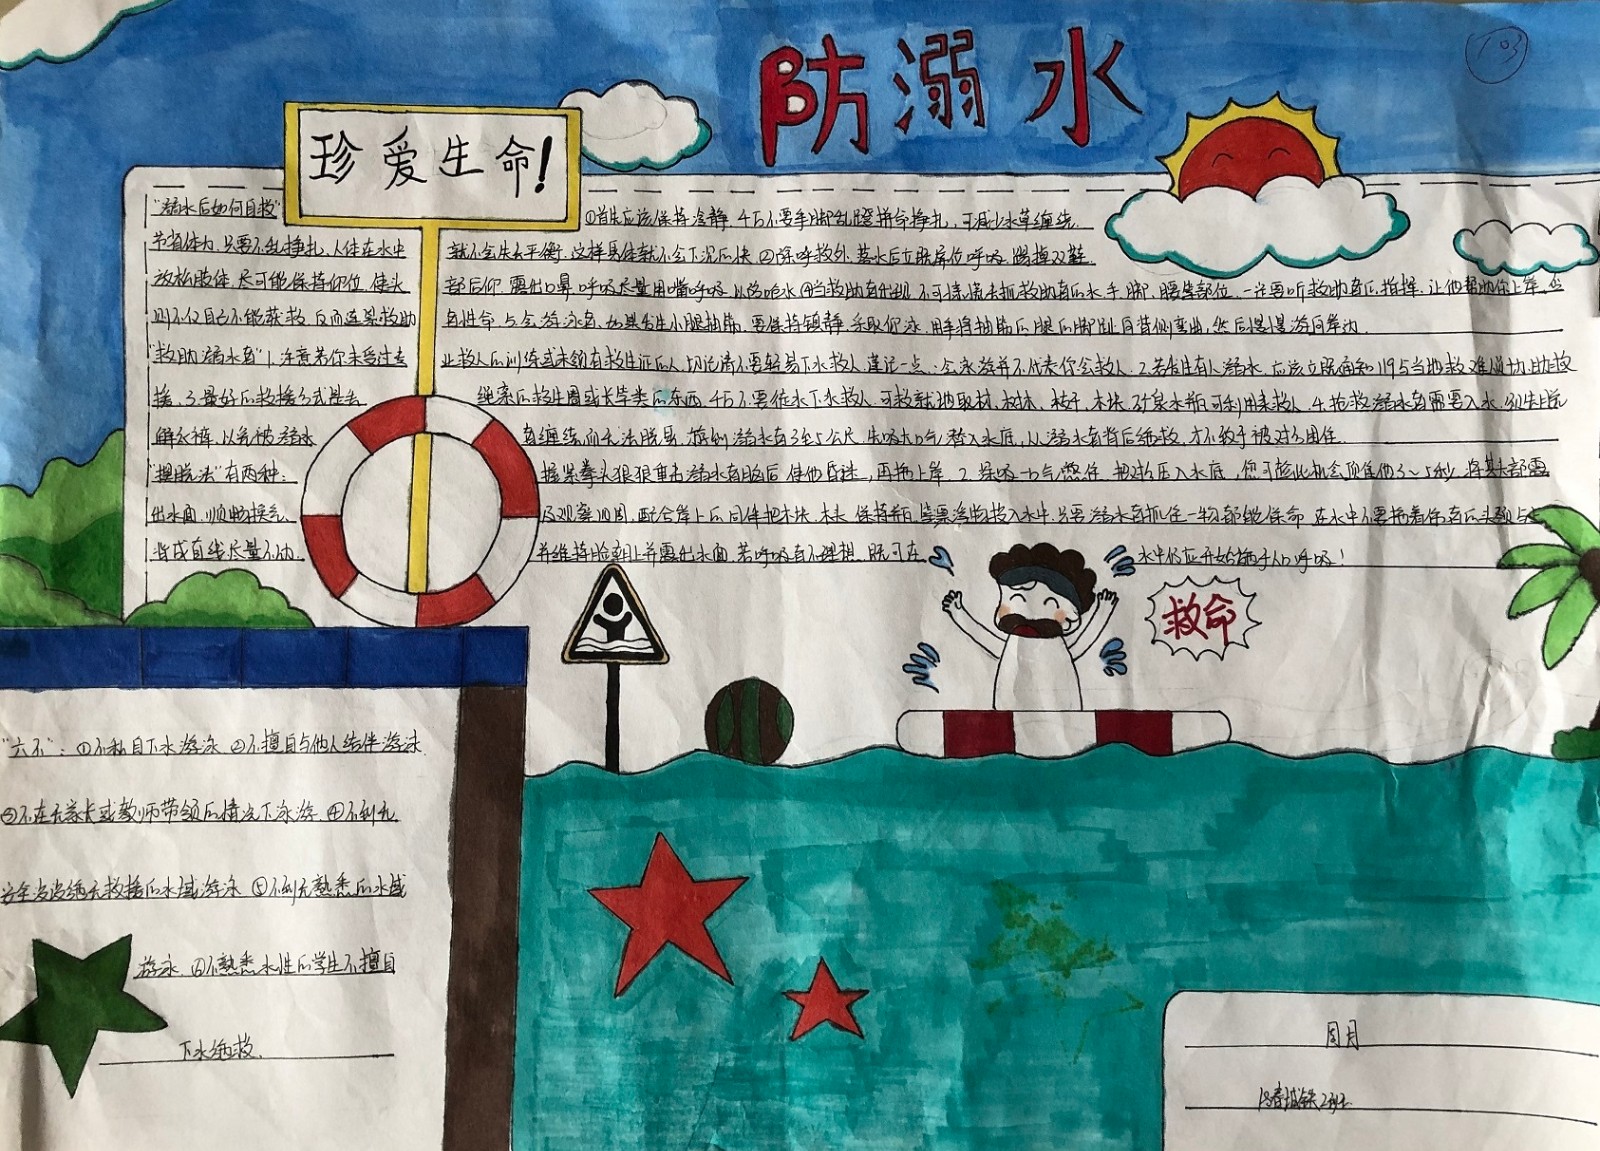 防溺水
103
珍爱生命!
"溺水后如何自救"
①首先应该保持冷静,千万不要手脚乱蹬拼命挣扎,可减少水草缠绕,
节省体力,只要不乱挣扎,人体在水中
就不会失去平衡,这样身体就不会下沉的快②除呼救外,落水后立即屏住呼吸,踢掉双鞋
放松肢体,尽可能保持仰位,使头
部后仰,露出口鼻,呼吸尽量用嘴呼吸,以防呛水④当救助者出现,不可惊慌去抓救助者的水手,脚,腰等部位,一定要听救助者的指挥,让他帮助你上岸,否
则不仅自己不能获救,反而连累救助
者性命,与会游泳者,如果发生小腿抽筋,要保持镇静,采取仰泳,用手将抽筋的腿的脚趾向背侧弯曲,然后慢慢游向岸边.
"救助溺水者"1.注意若你未受过专
业救人的训练或未领有救生证的人,切记请不要轻易下水救人,谨记一点:会泳游并不代表你会救人.2.若发生有人溺水,应该立既通知119与当地救难单位,协助救
援,3.最好的救援方式是丢
绳索的救生圈或长竿类的东西,千万不要徒水下水救人,可救就地取材,树林,枝干,木块,矿泉水瓶可利用来救人.4.抢救溺水者需要入水,须先脱
解衣裤,以免被溺水
者缠绕而无法脱身,
"摆脱法"有两种:
握紧拳头狠狠重击溺水者脑后,使他昏迷,再拖上岸.2.深吸一口气憋住,把对方压入水底,您可趁此机会预售他3~5秒,将其头部露
出水面,顺畅换气.
及观察四周,配合岸上的同伴把木块,木头,保特瓶,等漂浮物投入水中,只要溺水者抓住一物都能保命,在水中不要拖着伤者的头颈与
背成直线尽量不动.
并维持脸朝上并露出水面,若呼吸者不理想,既可在
水中仍应开始施予人口呼吸!
救命
"六不":①不私自下水游泳②不擅自与他人结伴游泳
③不在无家长或教师带领的情况下泳游④不到无
安全设施无救援的水域游泳⑤不到无熟悉的水域
游泳.⑥不熟悉水性的学生不擅自
下水施救.
周月